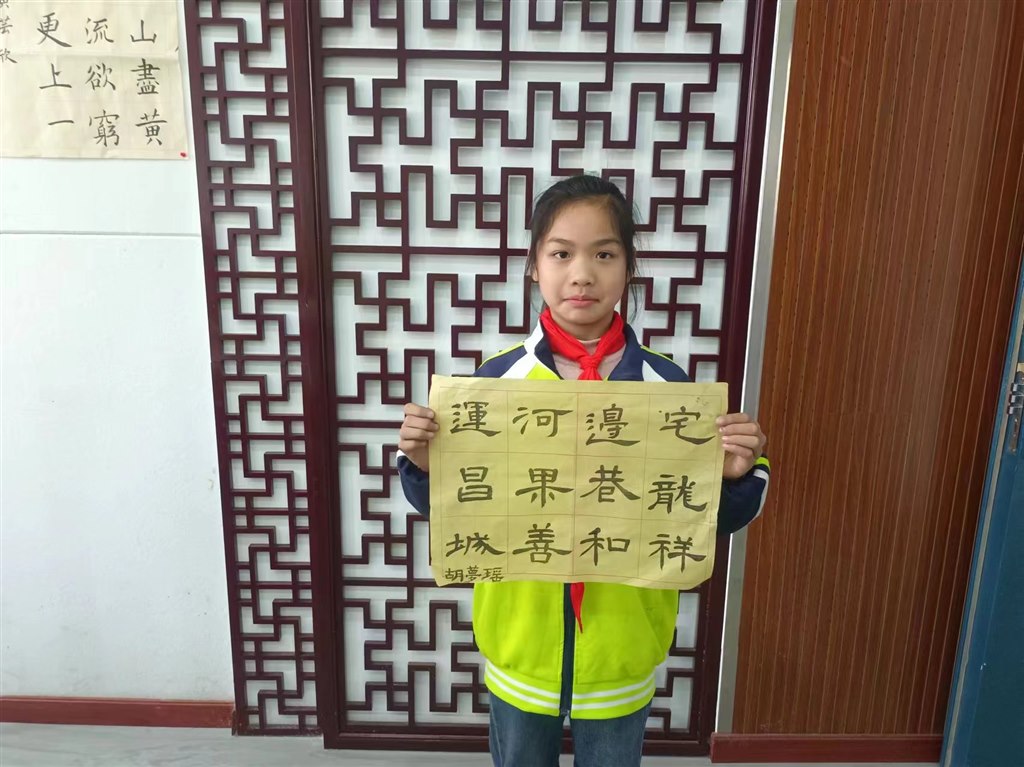 山盡黄
流欲窮
更上一
宅龍祥
邊巷和
河果善
運昌城
胡夢瑶